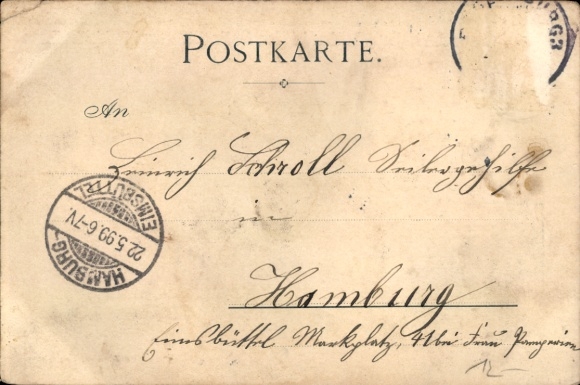 POSTKARTE.
An
Heinrich Schroll Seilergehilfe
in
Hamburg
Eimsbüttel Marktplatz, 41 bei Frau
12-
HAMBURG-
EIMSBÜTTEL
22.5.99.6-7V.